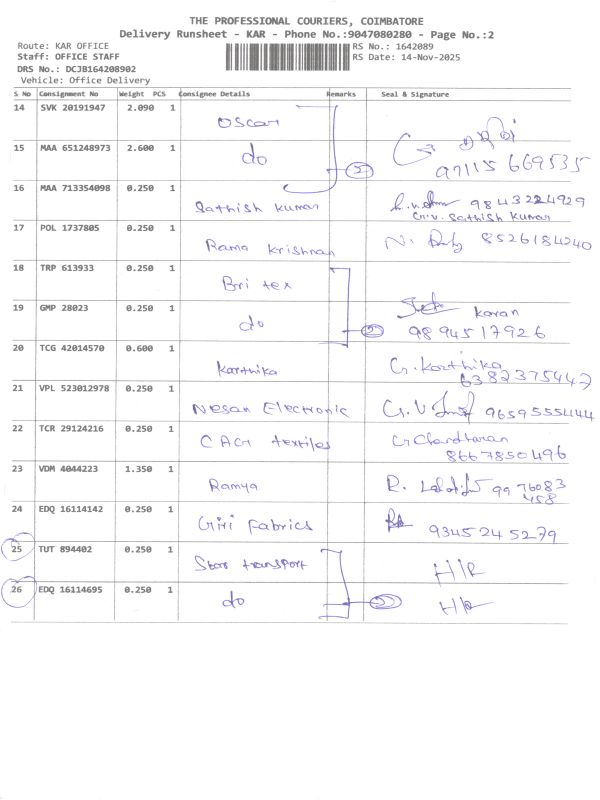 THE PROFESSIONAL COURIERS, COIMBATORE
Delivery Runsheet - KAR - Phone No.:9047080280 - Page No.:2
Route: KAR OFFICE RS No.: 1642089
Staff: OFFICE STAFF RS Date: 14-Nov-2025
DRS No.: DCJB164208902
Vehicle: Office Delivery
S No Consignment No Weight PCS Consignee Details Remarks Seal & Signature
14 SVK 20191947 2.090 1 Oscar
15 MAA 651248973 2.600 1 do 97115 669535
16 MAA 713354098 0.250 1 Sathish kumar 9843224929
G.V. Sathish Kumar
17 POL 1737805 0.250 1 Rama krishnan N. 8526184240
18 TRP 613933 0.250 1 Bri tex
19 GMP 28023 0.250 1 do Karan
9894517926
20 TCG 42014570 0.600 1 karthika G. Karthika
6382375447
21 VPL 523012978 0.250 1 Nesan Electronic G.V 9659555444
22 TCR 29124216 0.250 1 CAG textiles G Chandharan
8667850496
23 VDM 4044223 1.350 1 Ramya R. 9976083
458
24 EDQ 16114142 0.250 1 Giri Fabrics 9345245279
25 TUT 894402 0.250 1 Star transport H/R
26 EDQ 16114695 0.250 1 do H/R